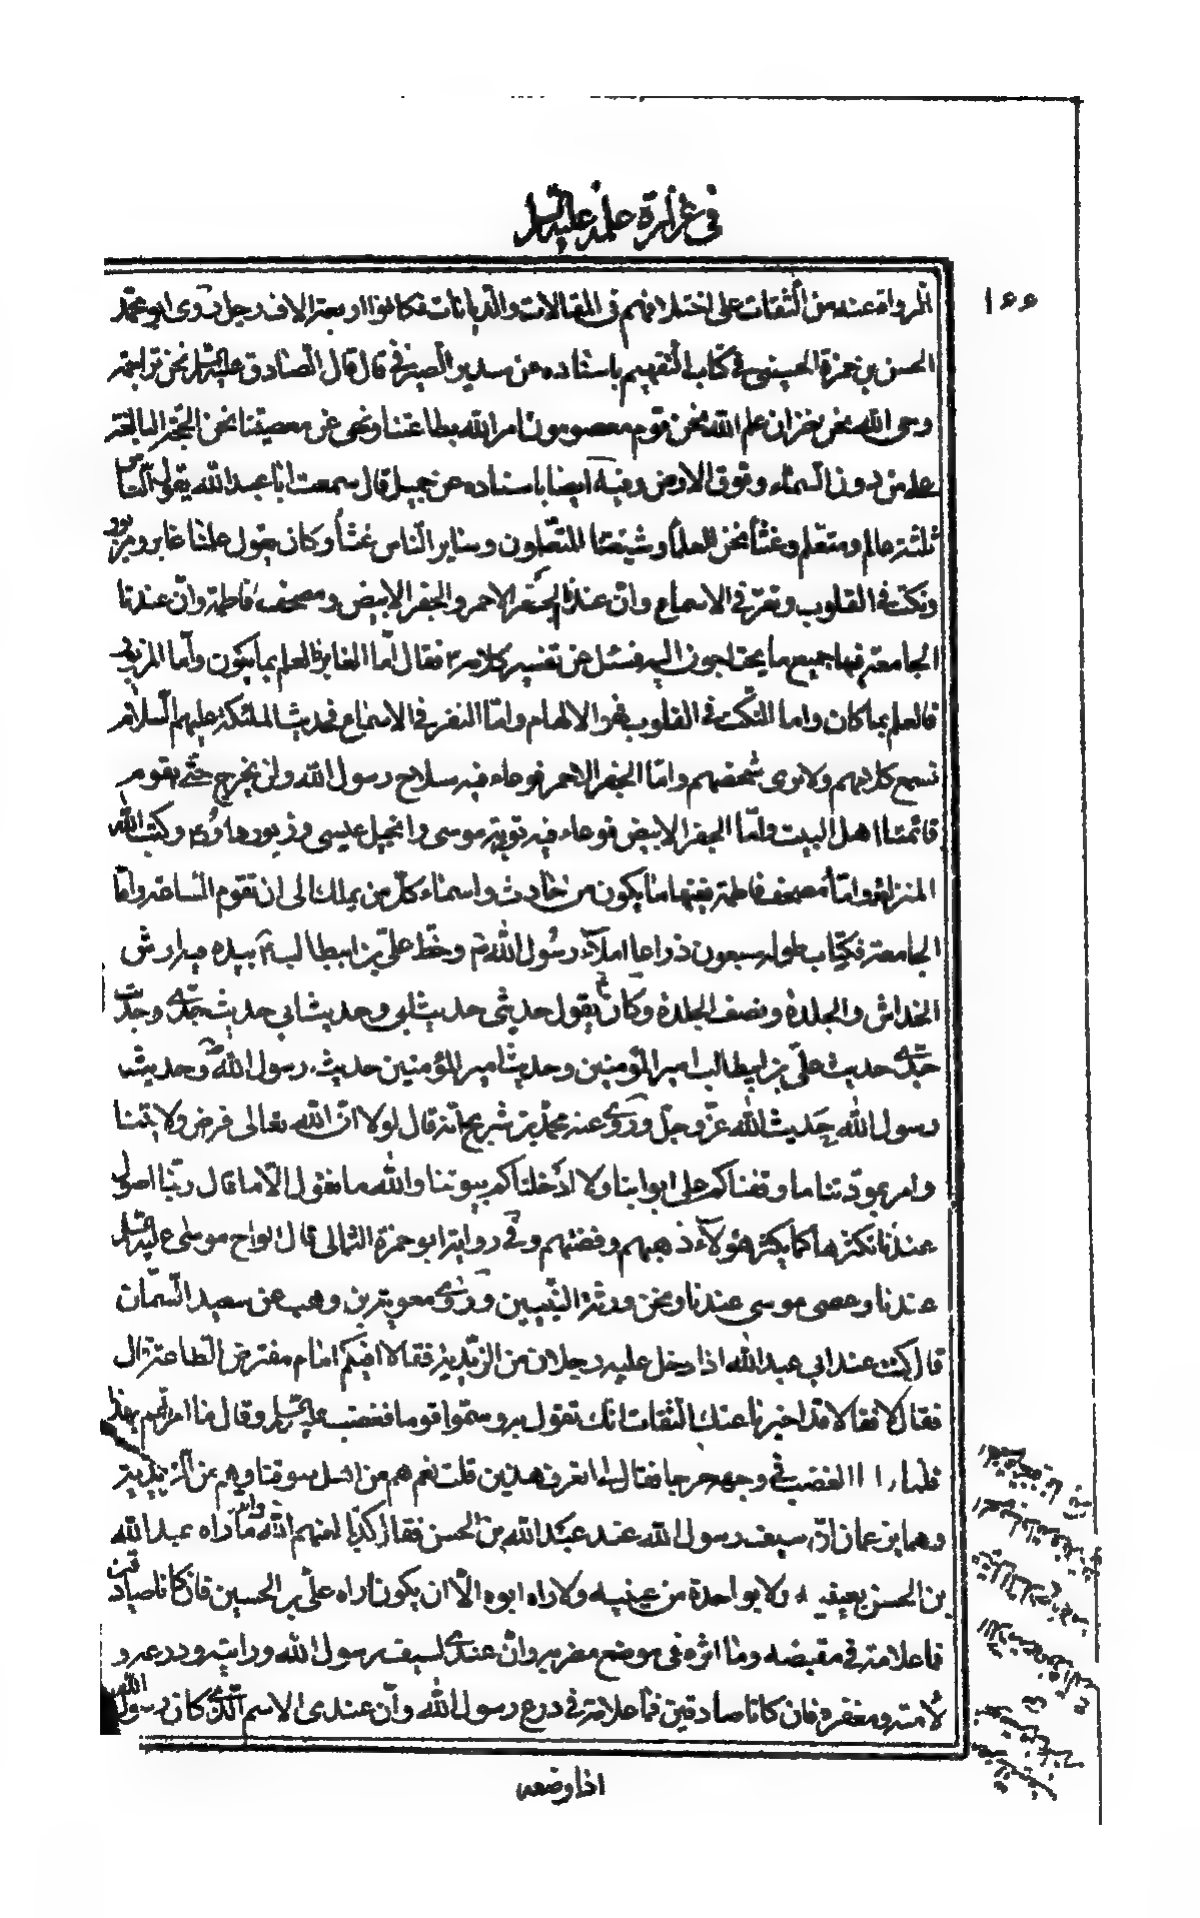 في غزارة علمه عليه السلم
١٥٥
الرواة عنه من الثقات على اختلافهم في المقالات والديانات فكانوا اربعة الاف رجل روى ابو محمد
الحسن بن حمزة الحسيني في كتاب التفهيم باسناده عن سدير الصيرفي قال قال الصادق عليه السلم نحن تراجمة
وحى الله نحن خزان علم الله نحن قوم معصومون امر الله بطاعتنا ونهى عن معصيتنا نحن الحجة البالغة
على من دون السماء وفوق الارض وفيه ايضا باسناده عن جميل قال سمعت ابا عبد الله يقول الناس
ثلثة عالم ومتعلم وغثأ نحن العلمأ وشيعتنا المتعلمون وساير الناس غثأ وكان يقول علمنا غابر ومزبور
ونكت في القلوب ونقر في الاسماع وان عندنا الجفر الاحمر والجفر الابيض ومصحف فاطمة وان عندنا
الجامعة فيها جميع ما يحتاجون اليه فسئل عن تفسير كلامه فقال اما الغابر فالعلم بما يكون واما المزبور
فالعلم بما كان واما النكت في القلوب فهو الالهام واما النقر في الاسماع فحديث الملئكة عليهم السلام
نسمع كلامهم ولا نرى شخصهم واما الجفر الاحمر فوعاء فيه سلاح رسول الله ولن يخرج حتى يقوم
قائمنا اهل البيت واما الجفر الابيض فوعاء فيه تورية موسى وانجيل عيسى وزبور داود وكتب الله
المنزلة واما مصحف فاطمة ففيها ما يكون من حادث واسماء كل من يملك الى ان تقوم الساعة واما
الجامعة فكتاب طوله سبعون ذراعا املاء رسول الله وخط علي بن ابيطالب بيده فيه ارش
الخداش والجلدة ونصف الجلدة وكان ع يقول حديثي حديث ابي وحديث ابي حديث جدي وحديث
جدي حديث علي بن ابيطالب امير المؤمنين وحديث امير المؤمنين حديث رسول الله وحديث
رسول الله حديث الله عز وجل وروى عنه محمد بن شريح انه قال لولا ان الله تعالى فرض ولايتنا
وامر بمودتنا ما وقفناكم على ابوابنا ولا ادخلناكم بيوتنا والله ما نقول الا ما قال ربنا اصول
عندنا نكنزها كما يكنز هؤلاء ذهبهم وفضتهم وفي رواية ابو حمزة الثمالى قال الواح موسى عليه السلم
عندنا وعصى موسى عندنا ونحن ورثة النبيين وروى معوية بن وهب عن سعيد السمان
قال كنت عند ابى عبد الله اذا دخل عليه رجلان من الزيدية فقالا افيكم امام مفترض الطاعة قال
فقال لا فقالا قد اخبرنا عنك الثقات انك تقول به وسموا قوما فغضب عليه السلم وقال ما امرتهم بهذا
فلما را يا الغضب في وجهه خرجا فقال لى اتعرف هذين قلت نعم هم من اهل سوقنا وهم من الزيدية
وهما يزعمان ان سيف رسول الله عند عبد الله بن الحسن فقال كذبا لعنهم الله والله ما راه عبد الله
بن الحسن بعينيه ولا بواحدة من عينيه ولا راه ابوه الا ان يكون راه علي بن الحسين فان كانا صادقين
فما علامة في مقبضه وما اثره في موضع مضربه وان عندي لسيف رسول الله ورايته ودرعه و
لامته ومغفره فان كانا صادقين فما علامة في درع رسول الله وان عندى الاسم الذي كان رسول الله
اذا وضعه